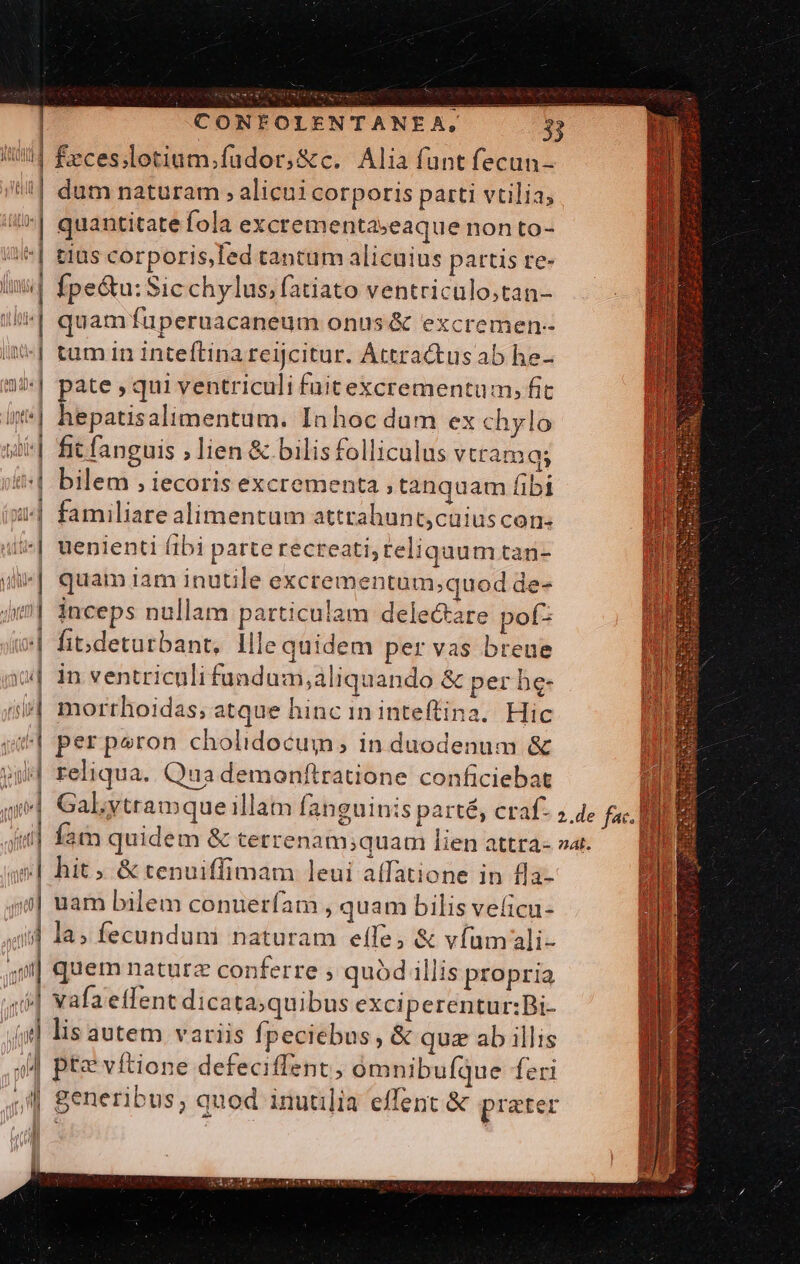 CONSOLENTANEA. 33
fæces,lotium,ſudor,&c. Alia ſunt ſecun-
dum naturam , alicui corporis parti vtilia,
quantitate ſola excrementa,eaque non to-
tius corporis,ſed tantum alicuius partis re-
ſpectu: Sic chylus, ſatiato ventriculo,tan-
quam ſuperuacaneum onus & excremen-
tum in inteſtina reijcitur. Attractus ab he-
pate , qui ventriculi fuit excrementum, fit
hepatis alimentum. In hoc dum ex chylo
fit ſanguis , lien & bilis folliculus vtramq;
bilem , iecoris excrementa , tanquam ſibi
familiare alimentum attrahunt,cuius con-
uenienti ſibi parte recreati, reliquum tan-
quam iam inutile excrementum,quod de-
inceps nullam particulam delectare poſ-
ſit,deturbant. Ille quidem per vas breue
in ventriculi fundum,aliquando & per he-
morrhoidas, atque hinc in inteſtina. Hic
per poron cholidocum , in duodenum &
reliqua. Qua demonſtratione conficiebat
Gal.vtramque illam ſanguinis parté, craſ- 2.de fac.
ſam quidem & terrenam,quam lien attra- nat.
hit , & tenuiſſimam leui aſſatione in fla-
uam bilem conuerſam , quam bilis veſicu-
la, ſecundum naturam eſſe, & vſum ali-
quem naturæ conferre , quòd illis propria
vaſa eſſent dicata,quibus exciperentur:Bi-
lis autem variis ſpeciebus , & quæ ab illis
præ vſtione defeciſſent, omnibuſque feri
generibus, quod inutilia eſſent & præter